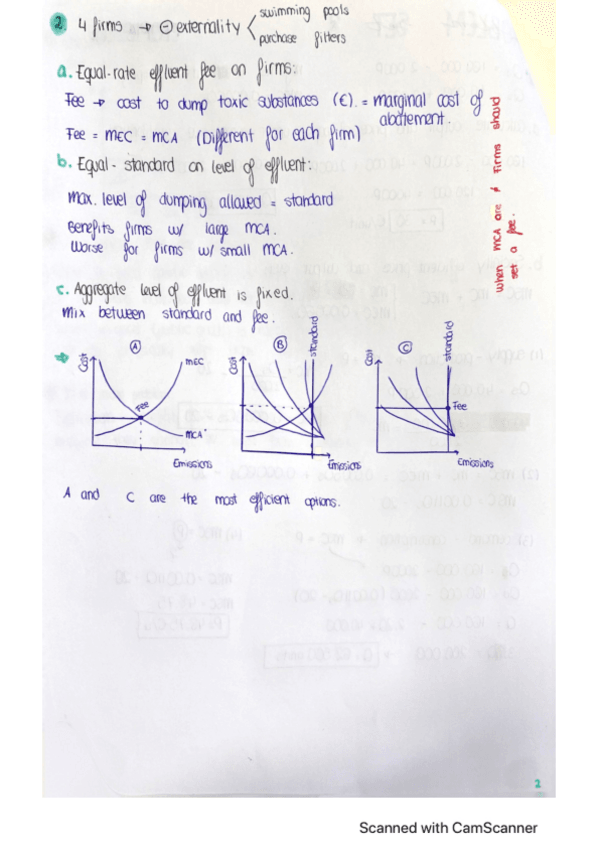 2. 4 firms → ⊖ externality < swimming pools
purchase filters
a. Equal-rate effluent fee on firms:
Fee → cost to dump toxic substances (€). = marginal cost of
abatement.
Fee = MEC = MCA (Different for each firm)
b. Equal-standard on level of effluent:
Max. level of dumping allowed = standard
Benefits firms w/ large MCA.
Worse for firms w/ small MCA.
when MCA are ≠ firms should
set a fee.
c. Aggregate level of effluent is fixed.
Mix between standard and fee.
A
Cost
MEC
Fee
MCA
Emissions
B
Cost
standard
Emissions
C
Cost
standard
Fee
Emissions
A and C are the most efficient options.
2
Scanned with CamScanner